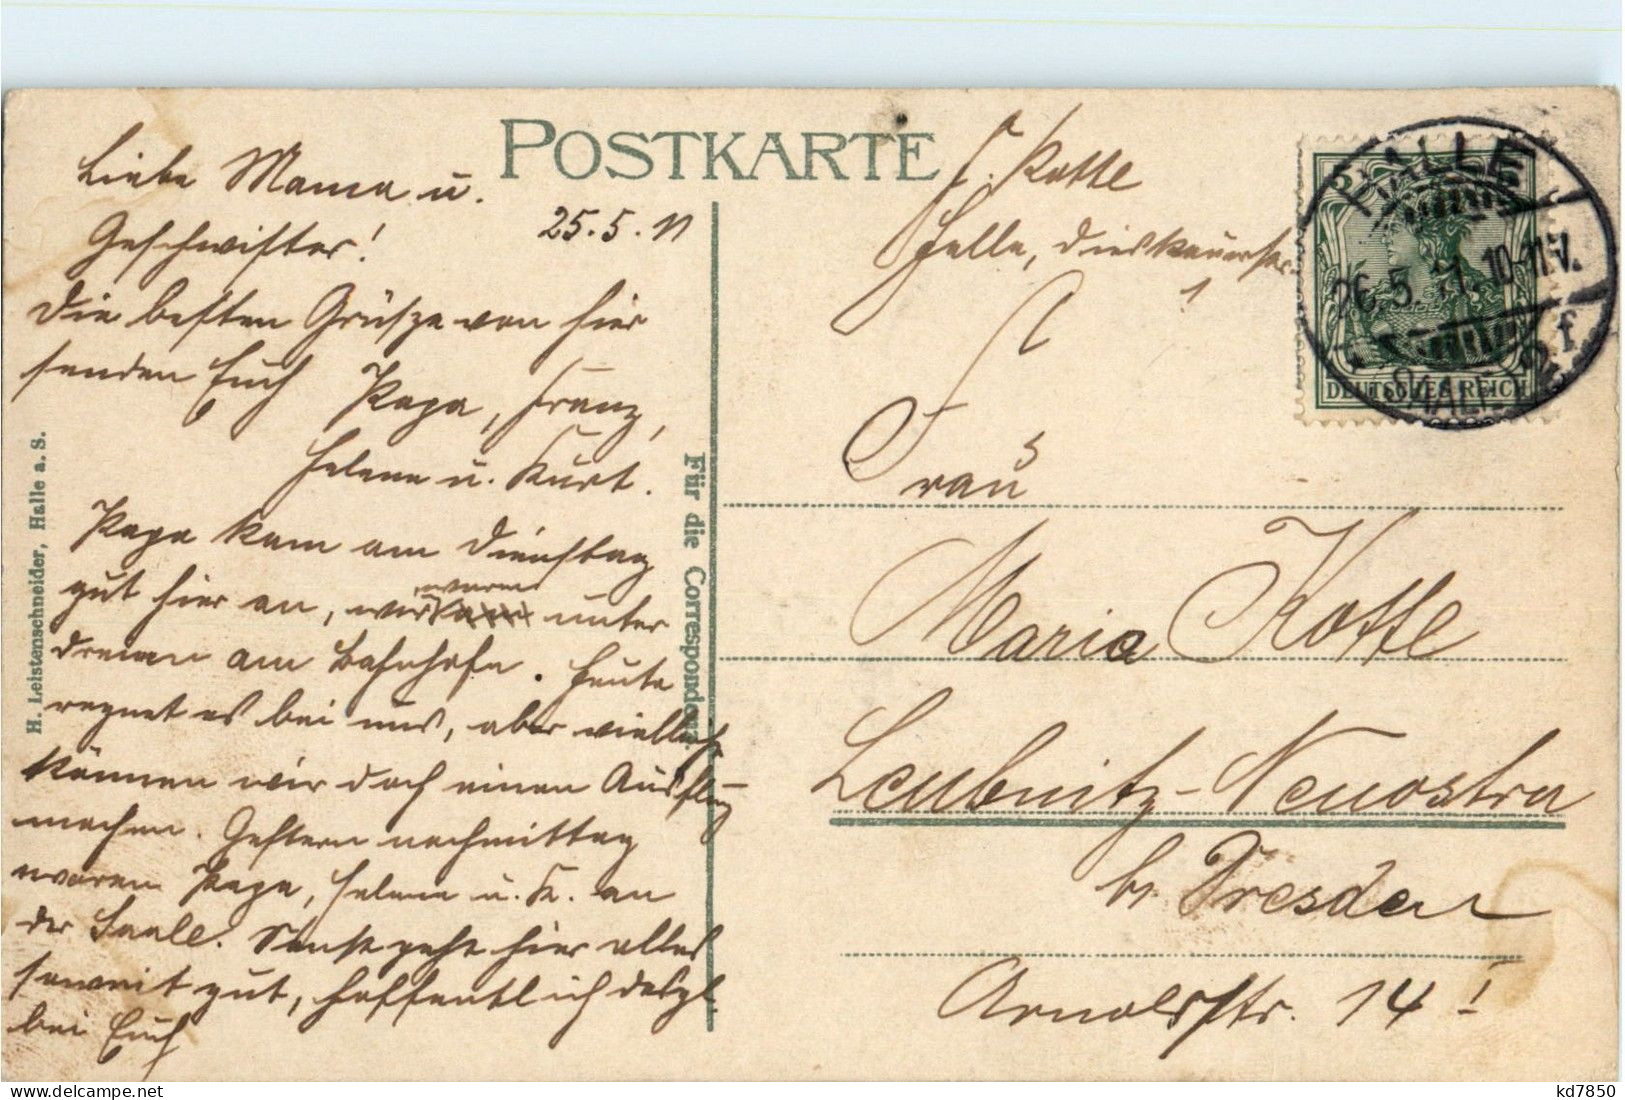 POSTKARTE
Liebe Mama u.
Geschwister!
25.5.11
Die besten Grüsze von hier
senden Euch Papa, Franz,
Helene u. Kurt.
Papa kam am Dienstag
gut hier an, wir waren unter
am Bahnhofe. Heute
regnet es bei uns, aber vielleicht
können wir doch einen Ausflug
machen. Gestern nachmittag
waren Papa, Helene u. K. an
der Saale. Sonst geht hier alles
soweit gut, hoffentlich desgl.
bei Euch
H. Leistenschneider, Halle a. S.
Für die Correspondenz
F. Kotte
Halle, Dieskauerstr.
1
Frau
Maria Kotte
Leubnitz-Neuostra
b. Dresden
14 !
DEUTSCHES REICH
HALLE
26.5.11.10-11V.
(SAALE) 2 f
kd7850